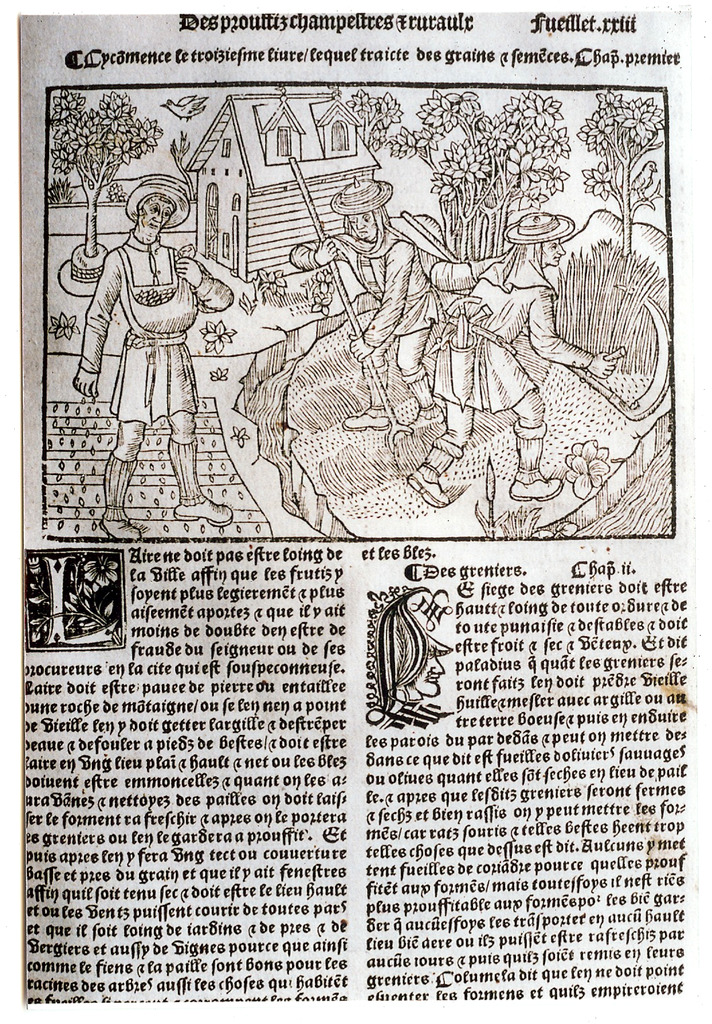 Des prouffiz champestres ⁊ ruraulx Fueillet.xxiii
¶Cy cõmence le troiziesme liure/lequel traicte des grains ⁊ semẽces. Chap̃. premier
LAire ne doit pas estre loing de
la ville affin que les frutiz y
soyent plus legierement ⁊ plus
aiseemẽt aportez ⁊ que il y ait
moins de doubte den estre de
fraude du seigneur ou de ses
procureurs en la cite qui est souspeconneuse.
Laire doit estre pauee de pierre ou entaillee
dune roche de mõtaigne/ou se ley nen a point
de vieille ley y doit getter largille ⁊ destrẽper
deaue ⁊ defouler a piedz de bestes/⁊ doit estre
laire en vng lieu plaĩ ⁊ hault ⁊ net ou les blez
doiuent estre emmoncellez ⁊ quant on les a-
ura vãnez ⁊ nettoyez des pailles on doit lais-
ser le forment rafreschir ⁊ apres on le portera
es greniers ou ley le gardera a prouffit. Et
puis apres ley y fera vng tect ou couuerture
basse et pres du grain et que il y ait fenestres
affin quil soit tenu sec ⁊ doit estre le lieu hault
et ou les ventz puissent courir de toutes pars
et que il soit loing de iardins ⁊ de pres ⁊ de
vergiers et aussy de vignes pource que ainsi
comme le fiens ⁊ la paille sont bons pour les
racines des arbres aussi les choses qui habitẽt
es fueilles ⁊ corrompent les formẽs
et les blez.
¶Des greniers. Chap̃. ii.
LE siege des greniers doit estre
hault ⁊ loing de toute ordure ⁊ de
toute punaisie ⁊ destables ⁊ doit
estre froit ⁊ sec ⁊ vẽteux. Et dit
paladius q̃ quãt les greniers se-
ront faitz ley doit prẽdre vieille
huille ⁊ mesler auec argille ou au
tre terre boeuse ⁊ puis en enduire
les parois du par dedãs ⁊ peut on mettre de-
dans ce que dit est fueilles doliuiers sauuages
ou oliues quant elles sõt seches en lieu de pail
le. ⁊ apres que lesditz greniers seront fermes
⁊ sechz et bien rassis on y peut mettre les for-
mẽs/car ratz souris ⁊ telles bestes heent trop
telles choses que dessus est dit. Aulcuns y met
tent fueilles de coriãdre pource quelles prouf
fitẽt aux formẽs/mais toutesfoys il nest riẽs
plus prouffitable aux formẽs po᷑ les biẽ gar-
der q̃ aucũesfoys les trãsporter en aucũ hault
lieu biẽ aere ou ilz puissẽt estre rafreschiz par
aucũs iours ⁊ puis quilz soiẽt remis en leurs
greniers. Columela dit que ley ne doit point
esuenter les formens et quilz empireroient